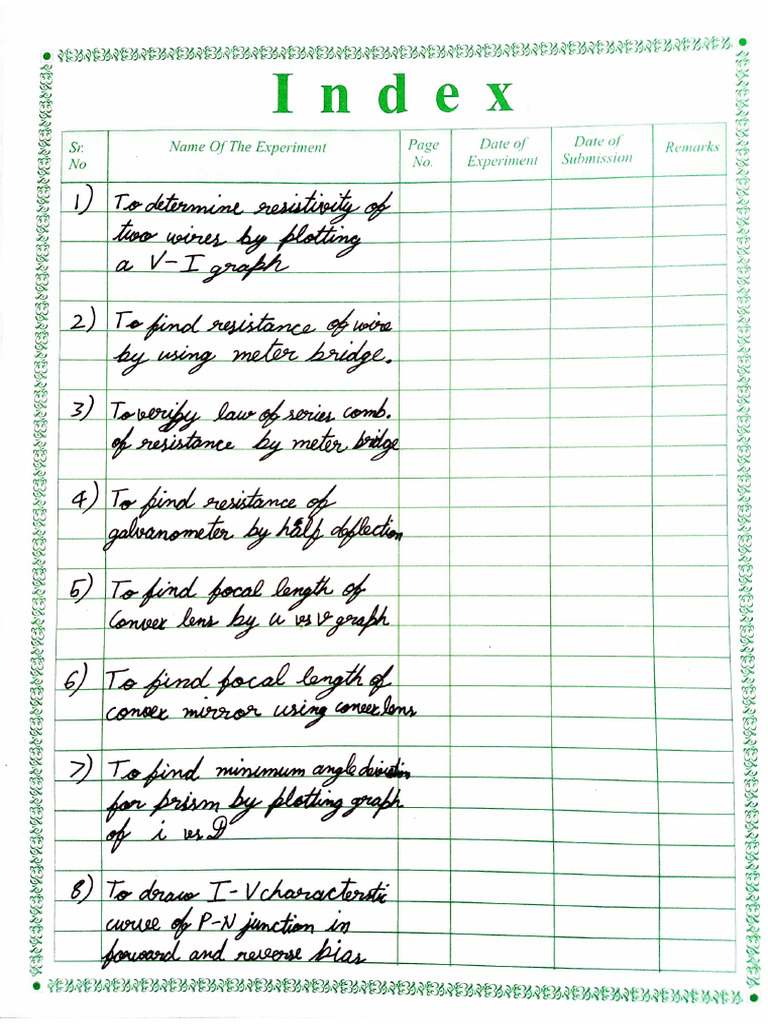 Index
Sr. No Name Of The Experiment Page No. Date of Experiment Date of Submission Remarks
1) To determine resistivity of
two wires by plotting
a V-I graph
2) To find resistance of wire
by using meter bridge.
3) To verify law of series comb.
of resistance by meter bridge
4) To find resistance of
galvanometer by half deflection
5) To find focal length of
convex lens by u vs v graph
6) To find focal length of
convex mirror using convex lens
7) To find minimum angle deviation
for prism by plotting graph
of i vs D
8) To draw I-V characterstic
curve of P-N junction in
forward and reverse bias